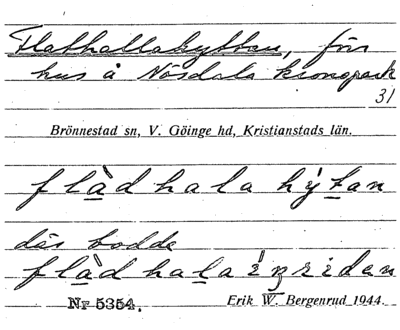 Flathallahyttan, förs.
hus å Nösdala kronopark
31
Brönnestad sn, V. Göinge hd, Kristianstads län.
flàdhala hỳtan
där bodde
flàdhala
Nr 5354.
Erik W. Bergenrud 1944.